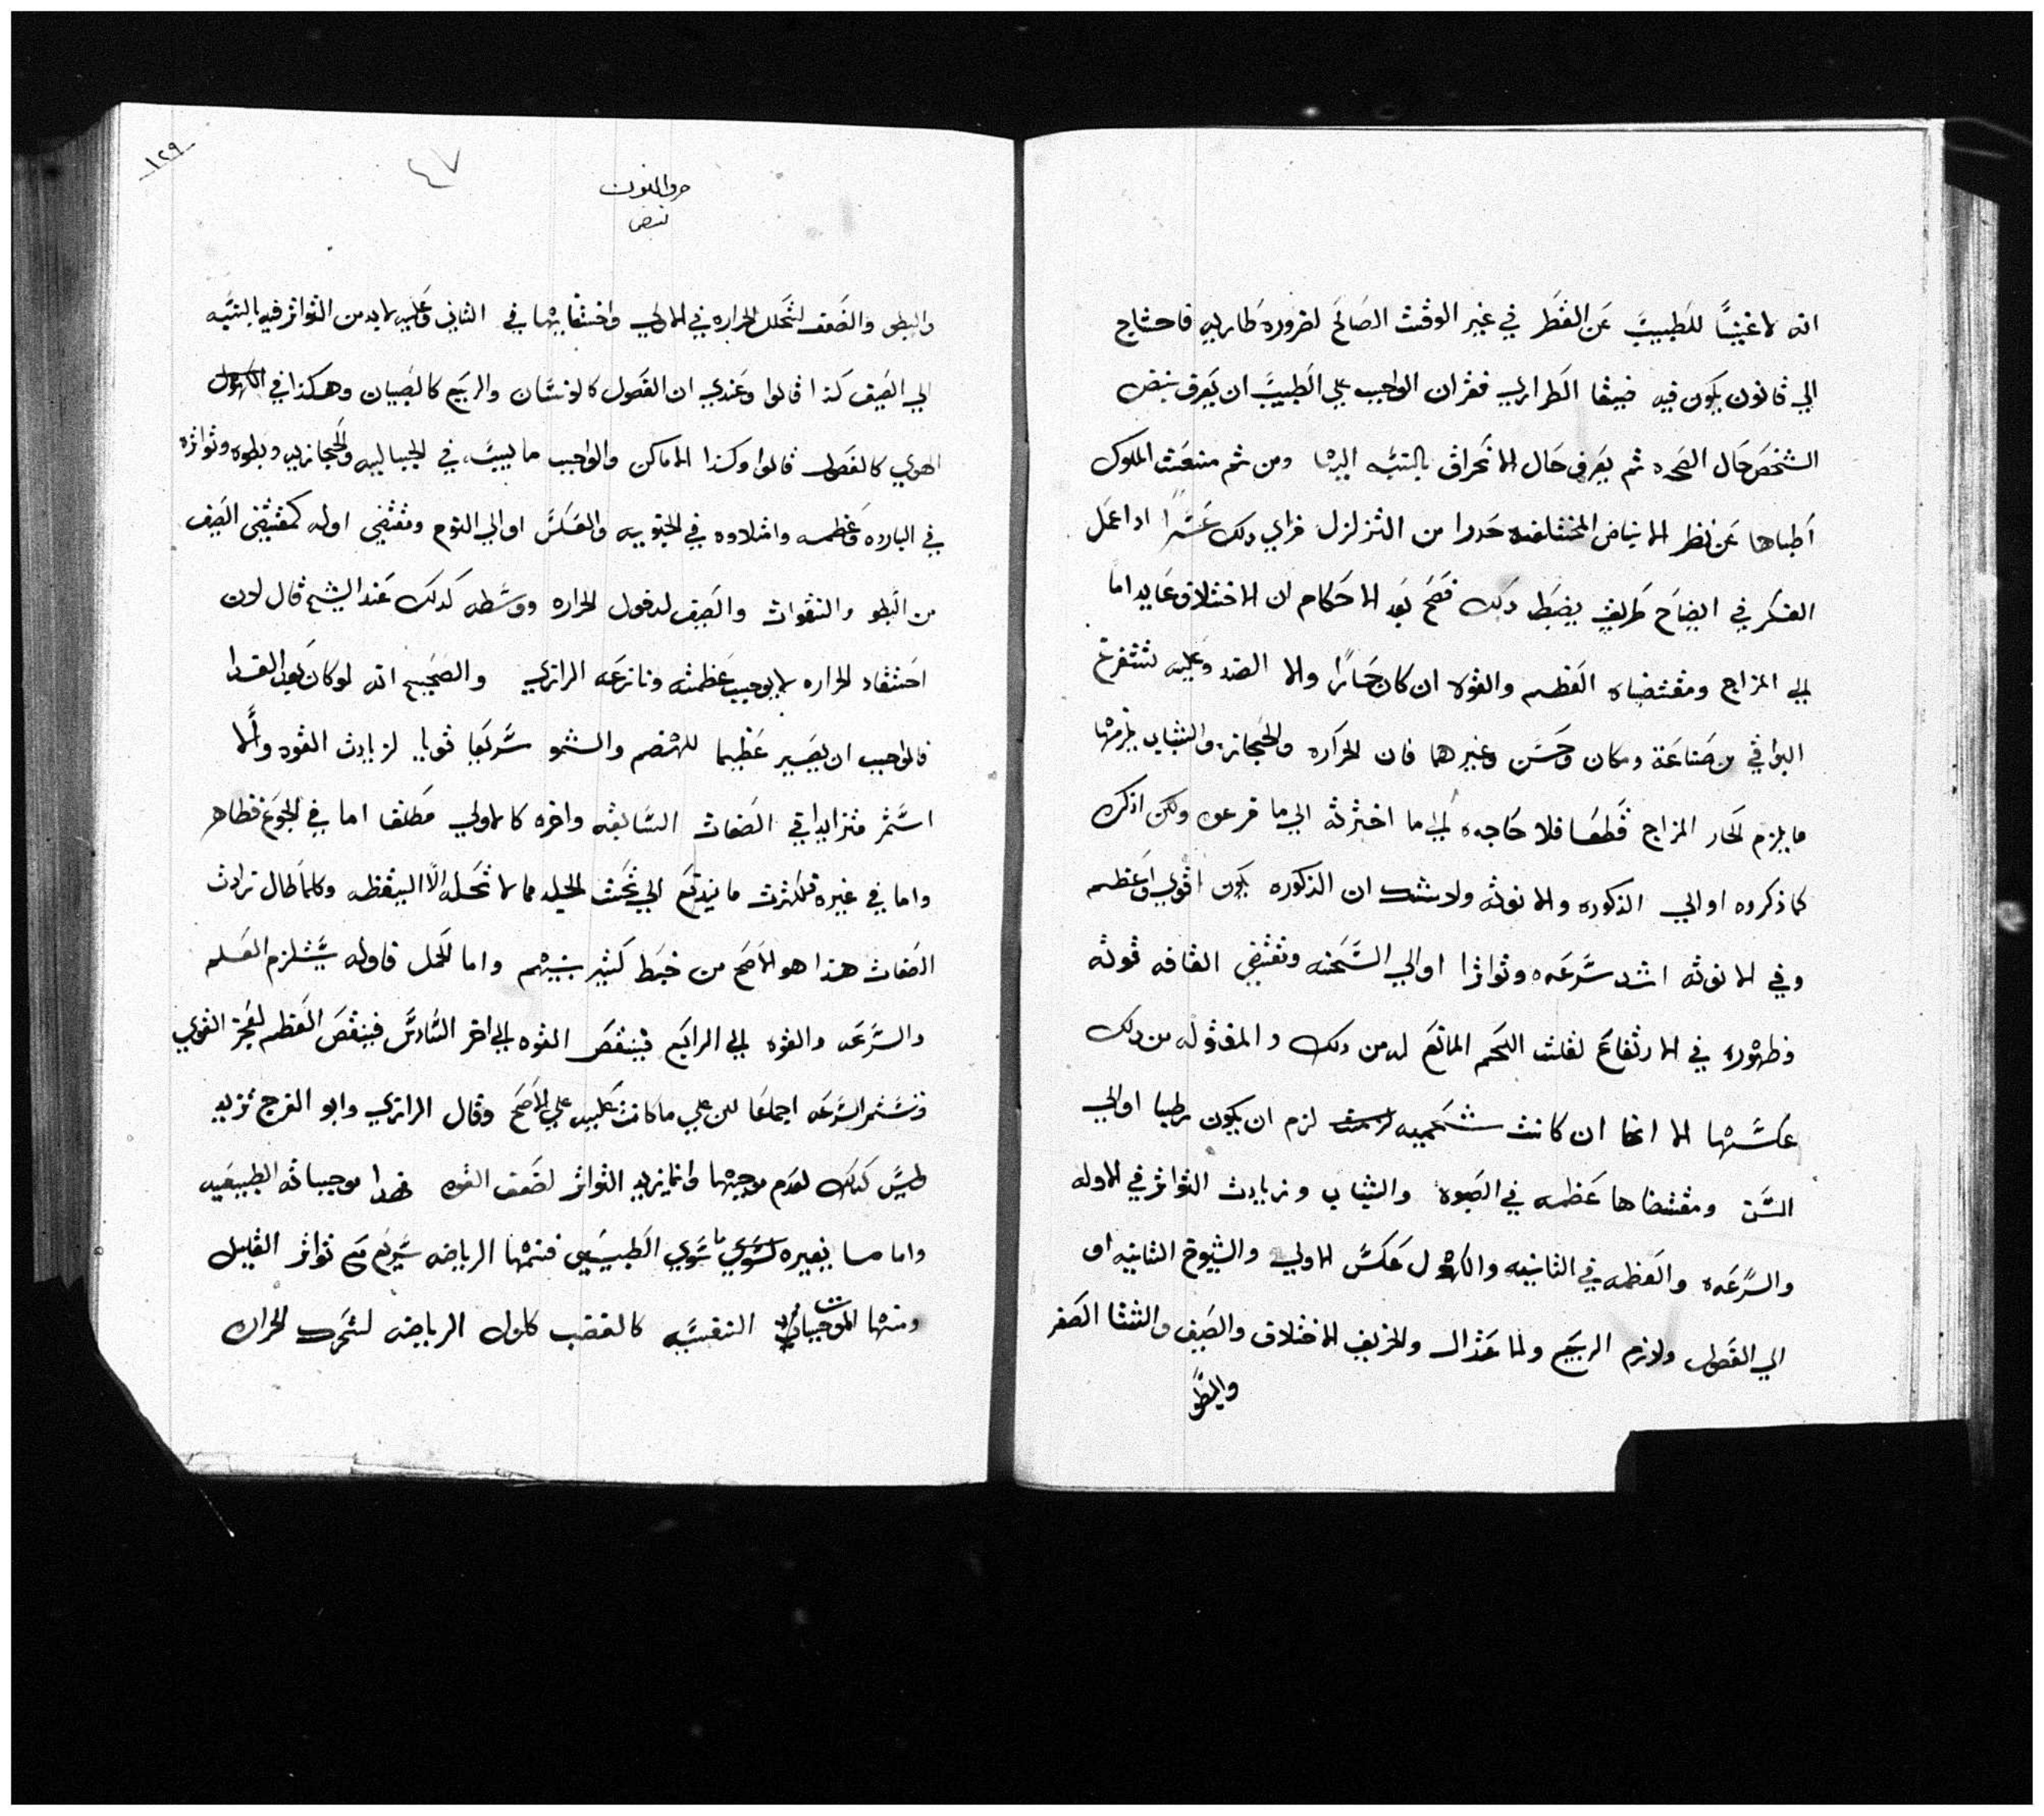 انه لا غنيا للطبيب عن النظر في غير الوقت الصالح لضروره طاريه فاحتاج
الي قانون يكون فيه فيثقا الطراري فقران الواجب علي الطبيب ان يعرف نبض
الشخص حال الصحه ثم يعرف حال الانحراف بالنسبه اليها ومن ثم منعت الملوك
اطباها عن نظر الانباض المختلفه حدرا من التزلزل فراي دلك عسرا ادا عمل
الفكر في ايضاح طريق يضبط دلك فصح بعد الاحكام ان الاختلاف عايد اما
الي المزاج ومقتضياه العظم والقوه ان كان حارا والا الضد وعليه تتفرع
البواقي من صناعة ومكان وسن وغيرهما فان الحراره والحجاز والشباب يلزمها
ما يلزم لحار المزاج قطعا فلا حاجه الي ما اخترته الي ما فرعوه ولكن اذكره
كما ذكروه او الي الذكوره والانوثه ولا شك ان الذكوره يكون اقوي واعظم
وفي الانوثه اشد سرعه وتواترا او الي السحنه وتقتضي القافه قوته
وظهوره في الارتفاع لقلت اللحم المانع له من دلك و المقوله من دلك
عكسها الا انها ان كانت شحميه لزم ان يكون رطبا او الي
السن ومقتضاها عظمه في الصبوه والشباب وزيادت التواتر في الاوله
والسرعه والعظمه في الثانيه والكهول عكس الاولي والشيوخ الثانيه او
الي الفصول ولازم الربيع ولما عتدال والخريف الاختلاف والصيف والشتا الصغر
والبطو
١٢٩
٤٧
حرف النون
نبض
والبطو والضعف لتحلل الحراره في الاولي واختفايها في الثاني وعليه لا بد من التواتر فيه بالنسبه
الي الصيف كذا قالوا وعندي ان الفصول كالاسنان والربيع كالصبيان وهكذا في الكهول
الهوي كالفصول قالوا وكذا الاماكن والواجب ما يببس في الجباليه والحجازيه وبطوه وتواتره
في البارده وعظمه وامتلاوه في الجنوبيه والعكس او الي النوم ومقتضي اوله كمقتضي الصيف
من البطو والتفوات والصيف لدخول الحراره ووسطه كدلك عند الشيخ قال لان
احتقاد الحراره لا يوجب عظمته ونازعه الرازي والصحيح انه لو كان بعد الغدا
فالواجب ان يصير عظيما للهضم والنمو سريعا قويا لزيادت القوه والا
استمر متزايدا في الصفات السابقه واخره كالاولي مطلقا اما في الجوع فظاهر
واما في غيره فلكثرت ما يندفع الي تحت الجلد مما لا تحله الا اليقظه وكلما طال تزادت
الصفات هذا هو الاصح من خبط كثير بينهم واما الحمل فاوله يستلزم العظم
والسرعه والقوه الي الرابع فينقص القوه الي اخر السادس فينقص العظم لعجز القوي
وتستمر السرعه اجماعا لان علي ما كانت عليه علي الاصح وقال الرازي وابو الفرج تزيد
وليس كدلك لعدم موجبها وانما يزيد التواتر لضعف القوه فهدا موجباته الطبيعيه
واما ما يغيره لسوي ما سوي الطبيعي فمنها الرياضه سريع مع تواتر القليل
ومنها الموجبات النفسيه كالغضب كاول الرياضه لتحرك الحراره